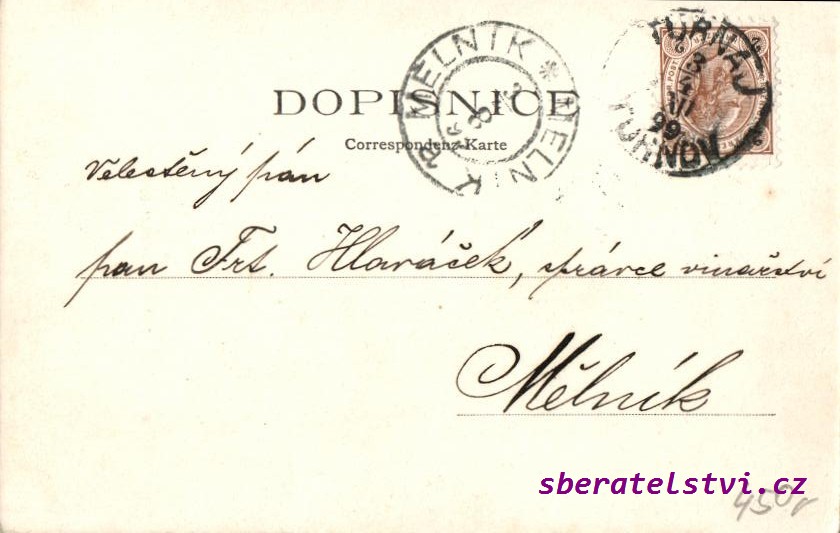 DOPISNICE
Correspondenz-Karte
MELNIK * MELNIK
TURNAU
99
TURNOV
Velectěný pán
pan Frt. Hlaváček, správce vinařství
Mělník
sberatelstvi.cz
450,-